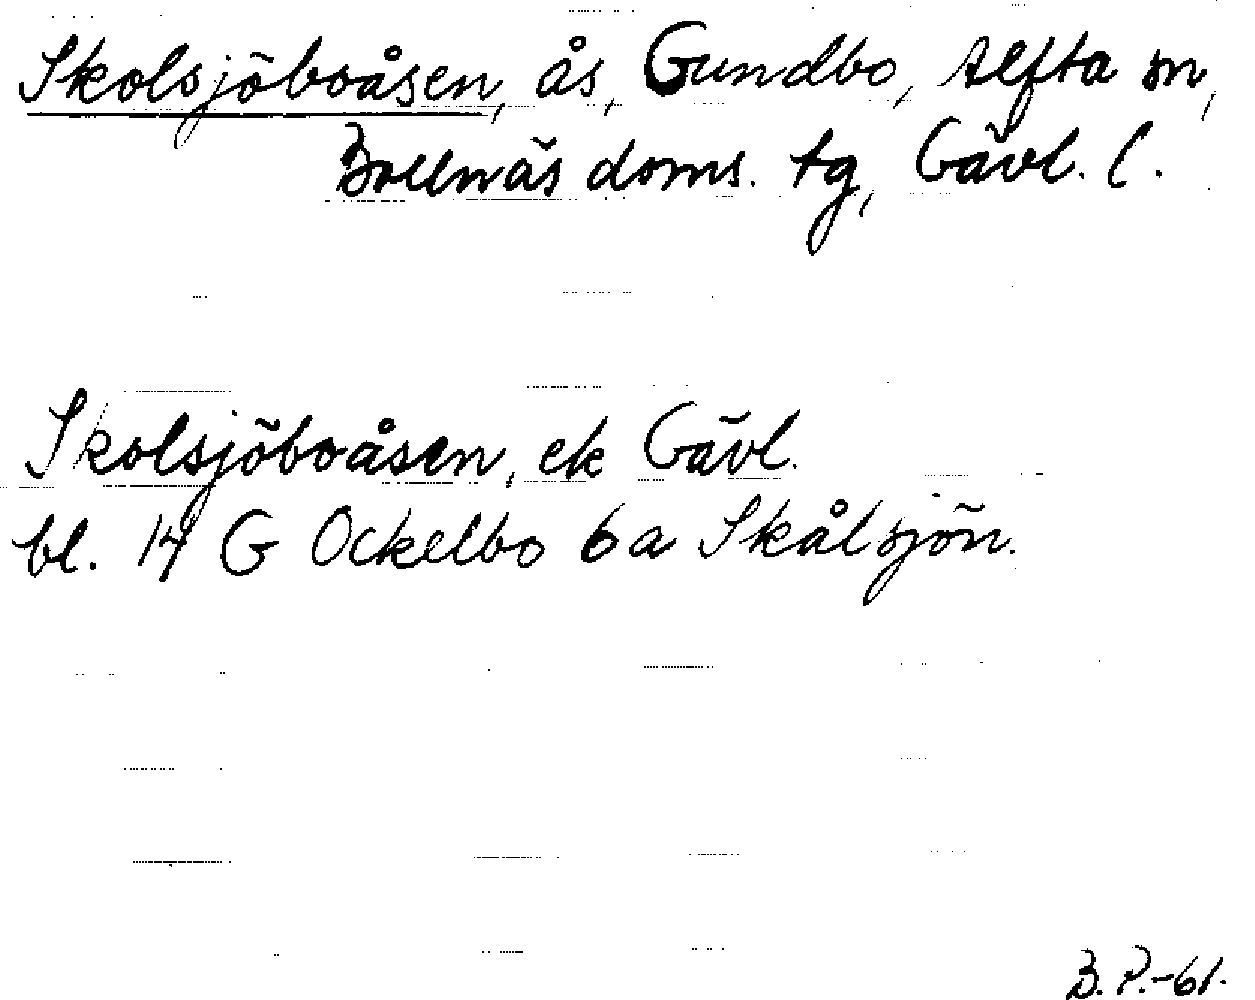 Skolsjöboåsen, ås, Gundbo, Alfta sn,
Bollnäs doms. tg, Gävl. l.
Skolsjöboåsen, ek Gävl.
bl. 14 G Ockelbo 6a Skålsjön.
B. P.-61.